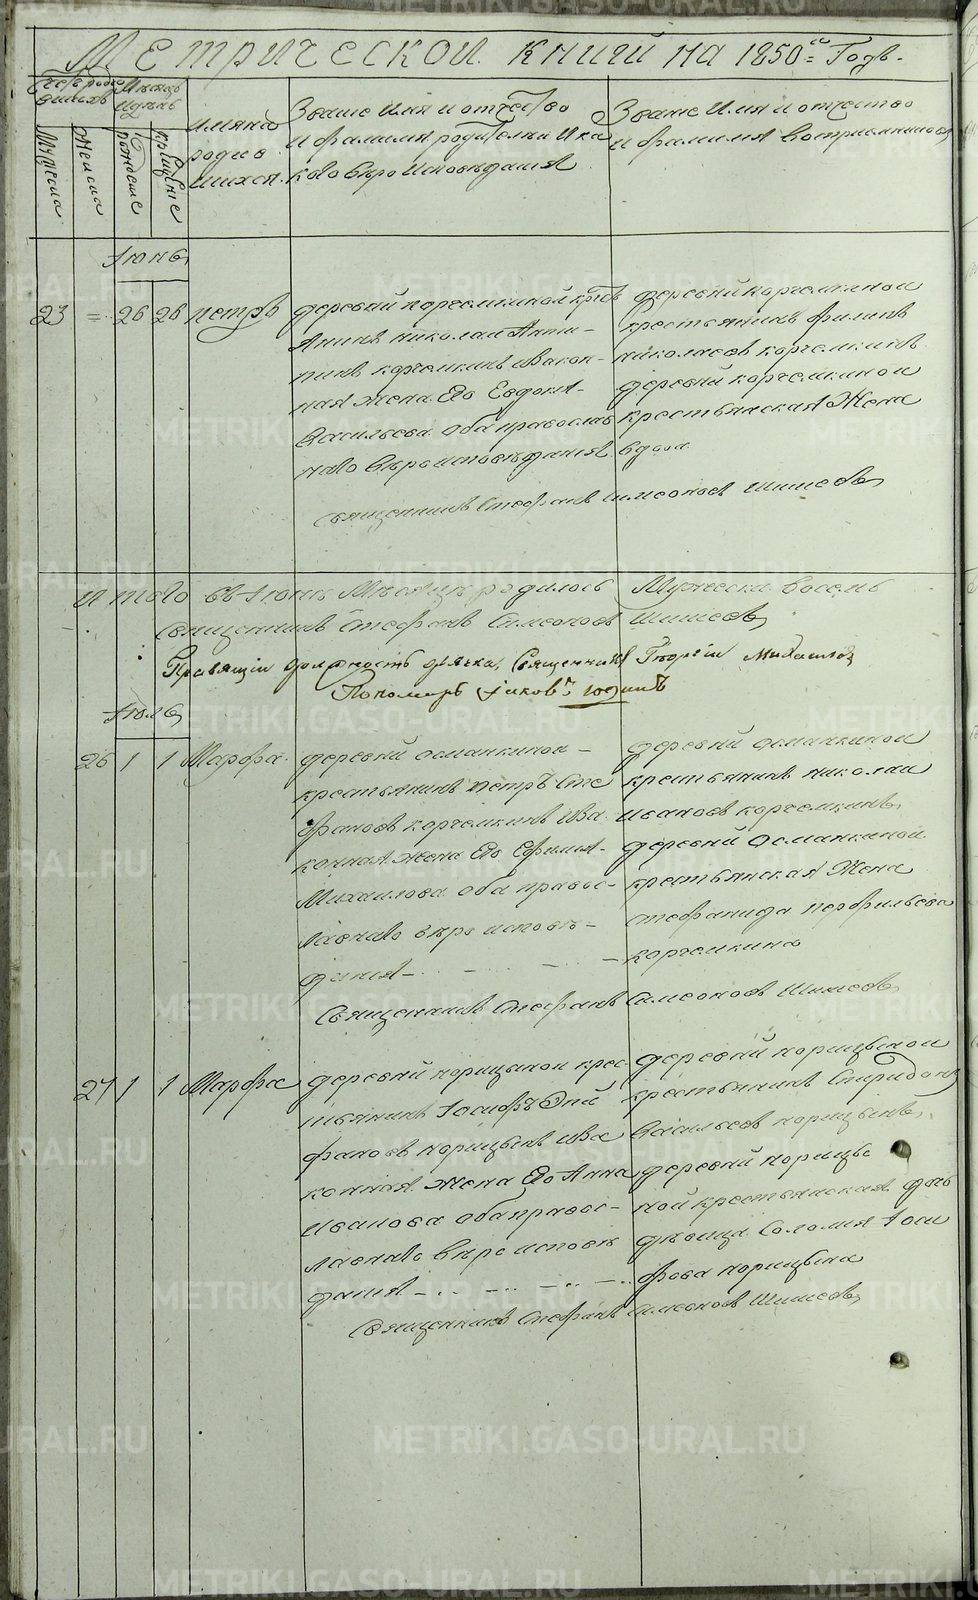 METRIKI.GASO-URAL.RU
Метрической книги на 1850й Годъ.
Счетъ родившихся
Месяцъ и день
Мужеска
Женска
Рождение
Крщение
Имяна родившихся.
Звание Имя и отчество
и фамилия родителей и ка
кого веро исповедания
Звание Имя и отчество
и фамилия восприемниковъ
Июнь
23 = 26 28 петръ
деревни корчемкиной крес
янинъ николай Анти-
пинъ корчемкинъ закон-
ная жена Его Евдокия
Васильева оба православ
наго вероисповедания
деревни корчемкиной
крестьянинъ филипъ
николаевъ корчемкинъ
деревни корчемкиной
крестьянская Жена
вдова
священникъ Стефанъ Симеоновъ Шишевъ
Итого въ Июне Месяце родилось Мужеска восемь
священникъ Стефанъ Симеоновъ Шишевъ
Правящий должность дьячка, Священникъ Георгий Михайловъ
Пономарь Иаковъ Юдинъ
Июль
26 1 1 Марфа.
деревни османкиной -
крестьянинъ петръ Сте
фановъ корчемкинъ зва
конная жена Его Ефимия-
Михаилова оба правос-
лавнаго веро испове-
дания
деревни османкиной
крестьянинъ николай
ивановъ корчемкинъ
деревни Османкиной
крестьянская Жена
стефанида перфильева
корчемкина
Священникъ Стефанъ Симеоновъ Шишевъ
27 1 1 Марфа
деревни норицыной крес
тьянинъ Иосифъ Епи
фановъ норицынъ зва
конная жена Его Анна
Иванова оба правос-
лавнаго веро испове
дания
деревни норицыной
крестьянинъ Спиридонъ
Васильевъ норицынъ
деревни норицы
ной крестьянская дочь
девица Соломия Иоси
фова норицына
священникъ Стефанъ Симеоновъ Шишевъ